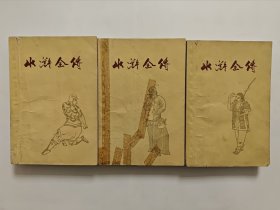 水浒全传
水浒全传
水浒全传